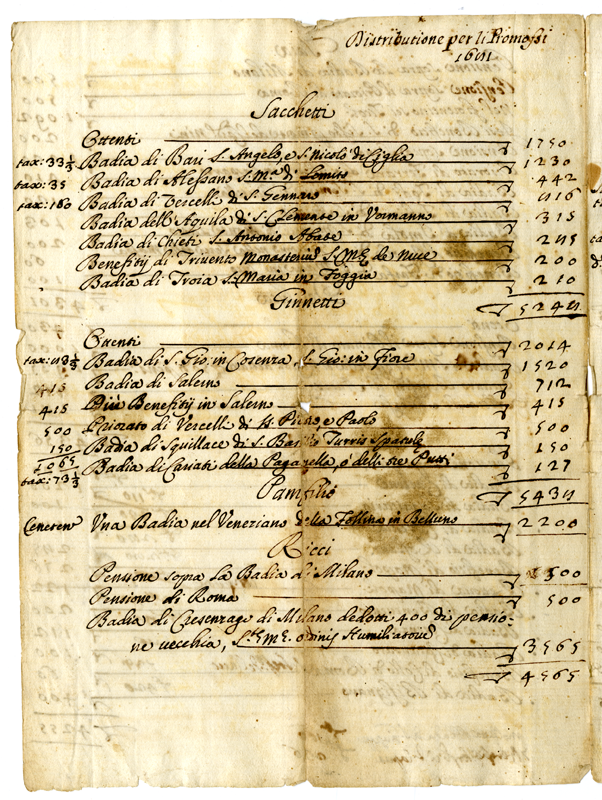 Distributione per li Promossi
1641
Sacchetti
Ottenti 1750
tax: 33⅓ Badia di Bari S. Angelo, e S. Nicolò di Ciglia 1230
tax: 35 Badia di Alessano S. Mª di Lemito 442
tax: 160 Badia di Vercelli di S. Gennaro 416
Badia dell'Aquila di S. Clemente in Vomanno 315
Badia di Chieti S. Antonio Abate 245
Benefitij di Trivento S. Mᵉ de Nuce 200
Badia di Troia S. Maria in Foggia 210
5244
Ginnetti
Ottenti 2014
tax: 43⅓ Badia di S. Gio: in Cosenza, S. Gio: in Fiore 1520
415 Badia di Salerno 712
415 Più Benefitij in Salerno 415
500 Priorato di Vercelli di SS. Pietro, e Paolo 500
150 Badia di Squillace di S. Basilio Turris Spatule 150
1065 Badia di Cariati della Pagazella, ò delli tre Putti 127
tax: 73⅓
Pamfilio 5434
Una Badia nel Veneziano della Follina in Belluno 2200
Ricci
Pensione sopra la Badia di Milano 500
Pensione di Roma 500
Badia di Cresenzago di Milano dedotti 400 di pensio-
ne vecchia, Sᵗᵉ Mᵉ. ordinis Humiliatorum 3565
4565